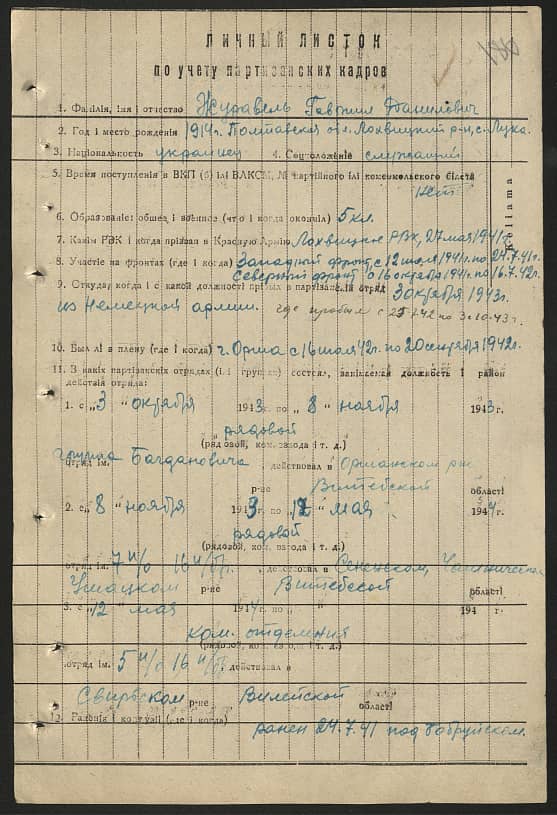 180
ЛИЧНЫЙ ЛИСТОК
по учету партизанских кадров
1. Фаміліа, імя і отчество Журавель Гаврил Данилович
2. Год і место рождения 1914г. Полтавская обл. Лохвицкий р-н, с. Лука.
3. Національность украинец 4. Соцположеніе служащий
5. Время поступленія в ВКП (б) ілі ВЛКСМ, № партійного ілі комсомольского білета
нет
6. Образованіе: общее і военное (что і когда окончіл) 5 кл.
7. Какім РВК і когда прізван в Красную Армію Лохвицкие РВК, 27 мая 1941г.
8. Участіе на фронтах (где і когда) Западный фронт с 12 июля 1941г. по 24.7.41г.
Северный фронт с 16 октября 1941г. по 16.7.42г.
9. Откуда, когда і с какой должності прінят в партізанскій отряд 3 октября 1943г.
из немецкой армии. где пробыл с 42 по 3.10.43г.
10. Был лі в плену (где і когда) г. Орша с 16 июля 42г. по 20 сентября 1942г.
11. В какіх партізанскіх отрядах (ілі группах) состоял, занімаемая должность і район
действія отряда:
1. с „3 " октября 1943г. по „8 " ноября 1943г.
рядовой
(рядовой, ком. взвода і т. д.)
отряд ім. группа Багдановича, действовал в Оршанском р-не
р-не Витебской області
2. с „8 " ноября 1943г. по „12" мая 1944г.
рядовой
(рядовой, ком. взвода і т. д.)
отряд ім. 7 и/о 16 и/бр., действовал в Сененском,
Ушацком р-не Витебской області
3. с „12 " мая 1944г. по „ " 194 г.
ком. отделения
(рядовой, ком. взвода і т. д.)
отряд ім. 5 и/о 16 и/бр. действовал в
Свирьском р-не Вилейской області
12. Раненія і контузіі (где і когда) ранен 24.7.41 под Бобруйском.